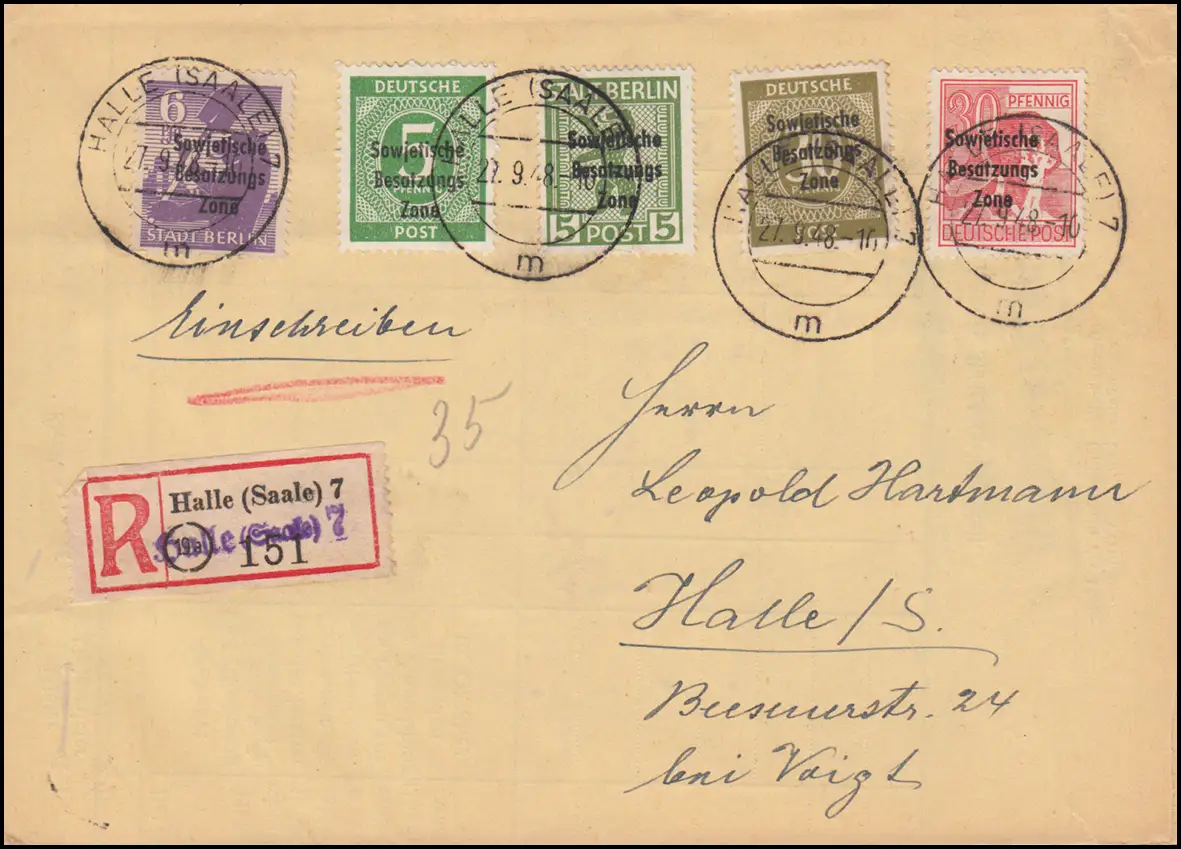 HALLE (SAALE) 7
27.9.48.-10
m
6
Sowjetische
Besatzungs
Zone
STADT BERLIN
DEUTSCHE
5
PFENNIG
Sowjetische
Besatzungs
Zone
POST
HALLE (SAALE)
27.9.48.-10
m
STADT BERLIN
Sowjetische
Besatzungs
Zone
5 POST 5
DEUTSCHE
Sowjetische
Besatzungs
Zone
POST
HALLE (SAALE) 7
27.9.48.-10
m
30 PFENNIG
Sowjetische
Besatzungs
Zone
DEUTSCHE POST
HALLE (SAALE) 7
27.9.48.-10
m
Einschreiben
35
R
Halle (Saale) 7
Halle (Saale) 7
19a
151
Herrn
Leopold Hartmann
Halle/S.
Beesenerstr. 24
bei Voigt